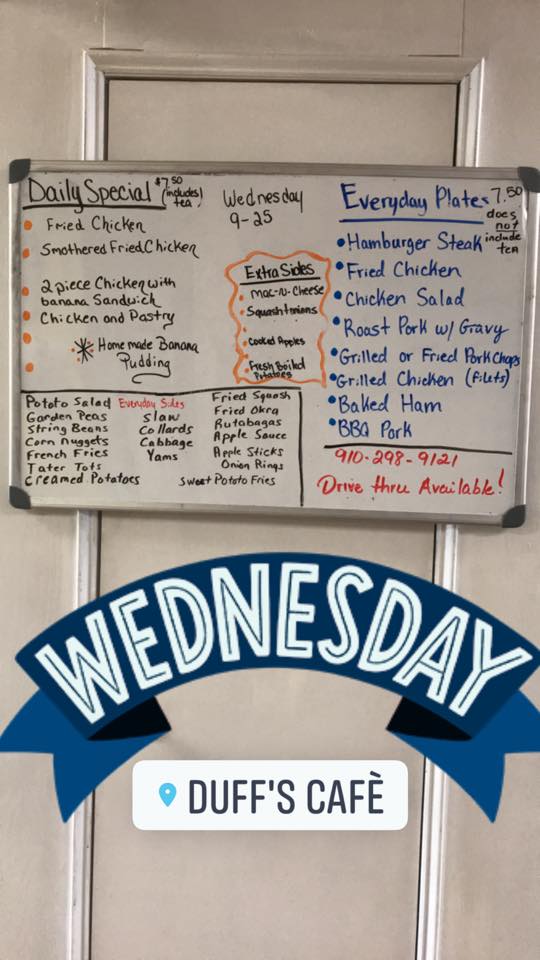 Daily Special $7.50 (includes tea)
Fried Chicken
Smothered Fried Chicken
2 piece Chicken with
banana Sandwich
Chicken and Pastry
Homemade Banana
Pudding
Wednesday
9-25
Extra Sides
Mac-N-Cheese
Squash+onions
Cooked Apples
Fresh Boiled
Potatoes
Everyday Plates 7.50
does
not
include
tea
Hamburger Steak
Fried Chicken
Chicken Salad
Roast Pork w/ Gravy
Grilled or Fried Pork Chops
Grilled Chicken (Filets)
Baked Ham
BBQ Pork
Everyday Sides
Potato Salad
Garden Peas
String Beans
Corn Nuggets
French Fries
Tater Tots
Creamed Potatoes
Slaw
Collards
Cabbage
Yams
Fried Squash
Fried Okra
Rutabagas
Apple Sauce
Apple Sticks
Onion Rings
Sweet Potato Fries
910-298-9121
Drive thru Available!
WEDNESDAY
DUFF'S CAFÈ